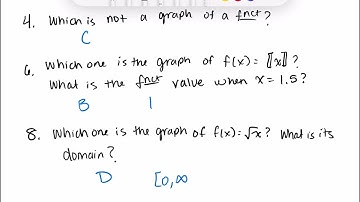 4. Which is not a graph of a fnct?
C
6. Which one is the graph of f(x) = ⟦x⟧?
What is the fnct value when x = 1.5?
B 1
8. Which one is the graph of f(x) = √x? What is its
domain?
D [0,∞